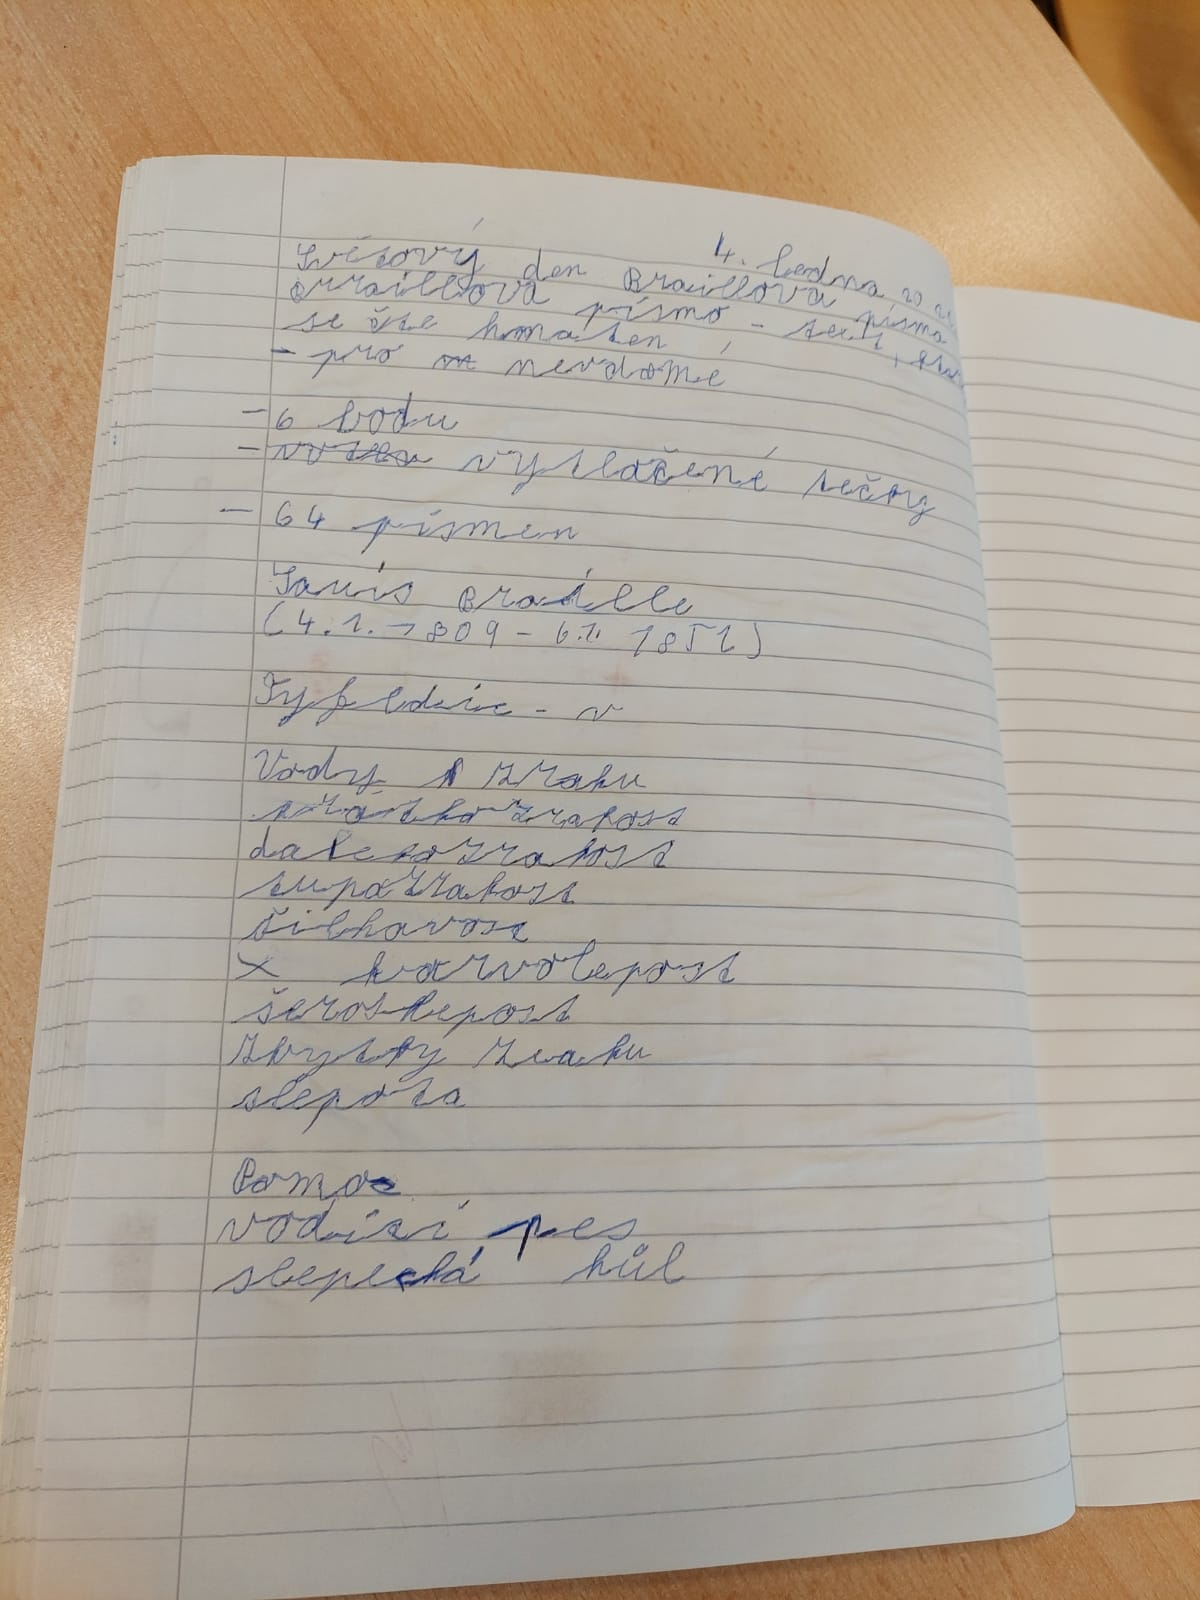 4. ledna
Světový den Braillova písma
Braillova písmo -
se čte hmaten
- pro nevdomé
- 6 bodu
- vytlačené tečky
- 64 písmen
Louis Braille
(4.1. 1809 - 6.1. 1852)
- v
Vady zraku
krátkozrakost
dalekozrakost
tupozrakost
šilhavost
x barvolepost
šeroslepost
Zbytky zraku
slepota
Pomoc
vodící pes
slepecká hůl